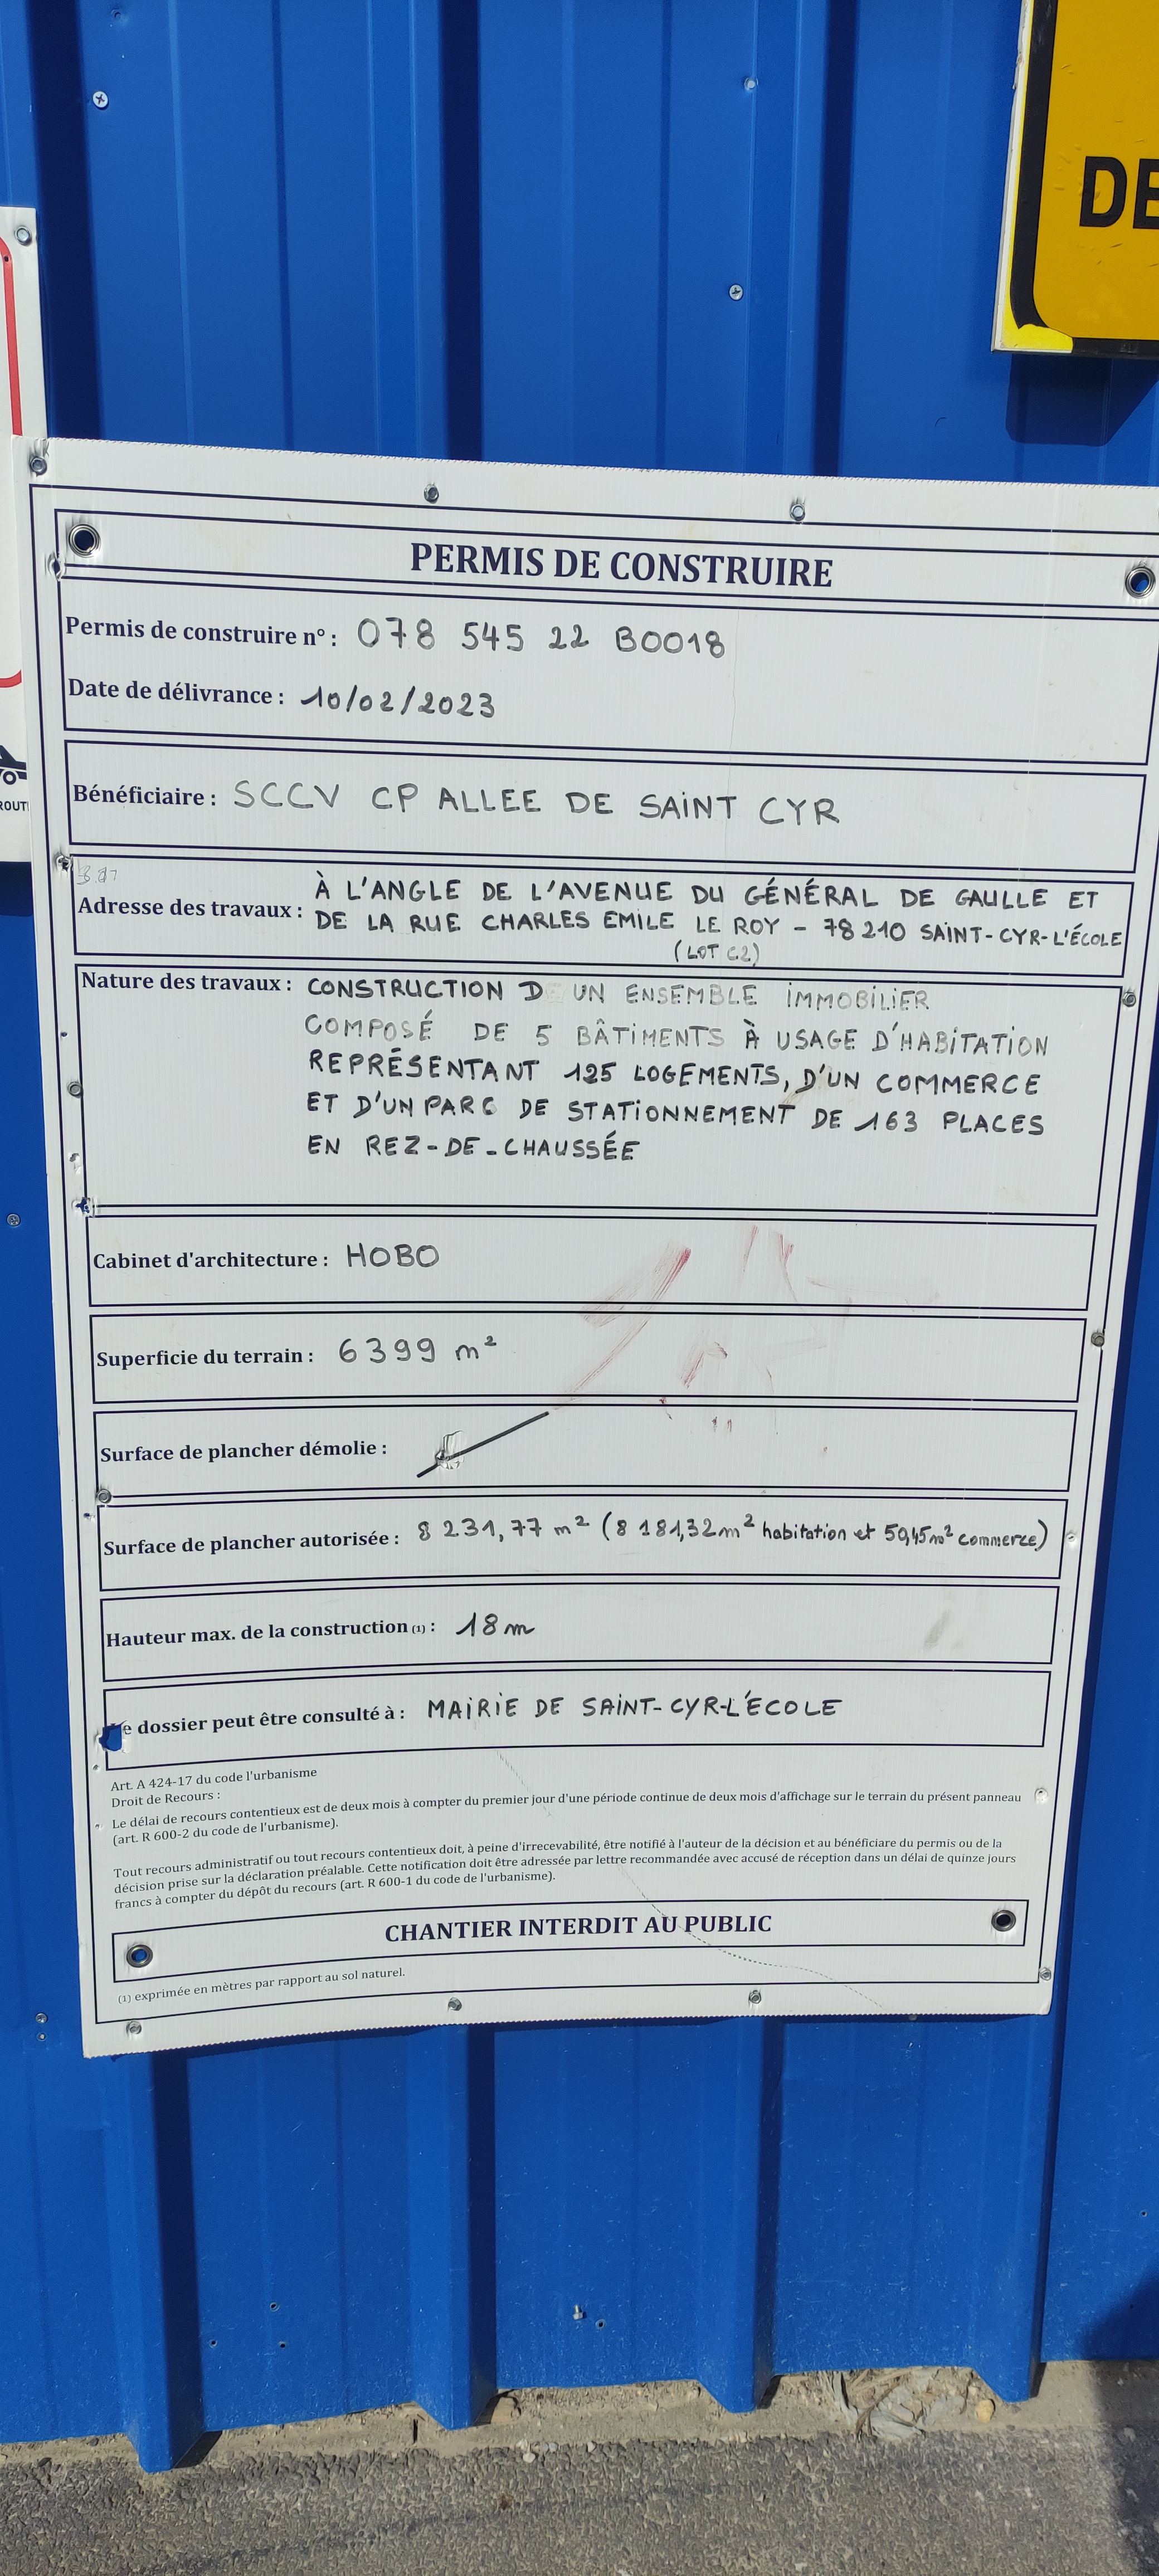 DE
ROUT
PERMIS DE CONSTRUIRE
Permis de construire n° : 078 545 22 B0018
Date de délivrance : 10/02/2023
Bénéficiaire : SCCV CP ALLEE DE SAINT CYR
Adresse des travaux : À L'ANGLE DE L'AVENUE DU GÉNÉRAL DE GAULLE ET
DE LA RUE CHARLES EMILE LE ROY - 78210 SAINT-CYR-L'ÉCOLE
(LOT C2)
Nature des travaux : CONSTRUCTION D UN ENSEMBLE IMMOBILIER
COMPOSÉ DE 5 BÂTIMENTS À USAGE D'HABITATION
REPRÉSENTANT 125 LOGEMENTS, D'UN COMMERCE
ET D'UN PARC DE STATIONNEMENT DE 163 PLACES
EN REZ-DE-CHAUSSÉE
Cabinet d'architecture : HOBO
Superficie du terrain : 6399 m²
Surface de plancher démolie :
Surface de plancher autorisée : 8 231,77 m² (8 181,32m² habitation et 50,45m² commerce)
Hauteur max. de la construction (1) : 18m
e dossier peut être consulté à : MAIRIE DE SAINT-CYR-L'ÉCOLE
Art. A 424-17 du code l'urbanisme
Droit de Recours :
Le délai de recours contentieux est de deux mois à compter du premier jour d'une période continue de deux mois d'affichage sur le terrain du présent panneau
(art. R 600-2 du code de l'urbanisme).
Tout recours administratif ou tout recours contentieux doit, à peine d'irrecevabilité, être notifié à l'auteur de la décision et au bénéficiaire du permis ou de la
décision prise sur la déclaration préalable. Cette notification doit être adressée par lettre recommandée avec accusé de réception dans un délai de quinze jours
francs à compter du dépôt du recours (art. R 600-1 du code de l'urbanisme).
CHANTIER INTERDIT AU PUBLIC
(1) exprimée en mètres par rapport au sol naturel.